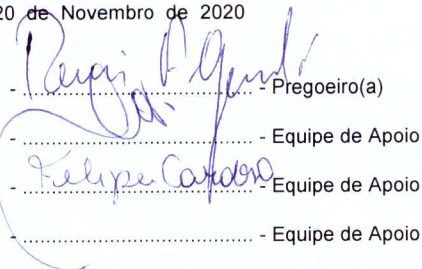 20 de Novembro de 2020
- ........................ - Pregoeiro(a)
- ........................ - Equipe de Apoio
- Felipe Cardoso - Equipe de Apoio
- ........................ - Equipe de Apoio